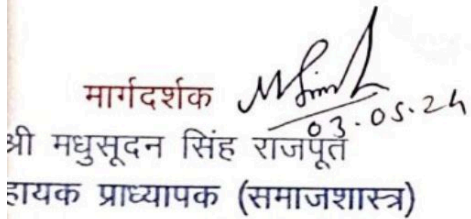 मार्गदर्शक
03.05.24
श्री मधुसूदन सिंह राजपूत
हायक प्राध्यापक (समाजशास्त्र)